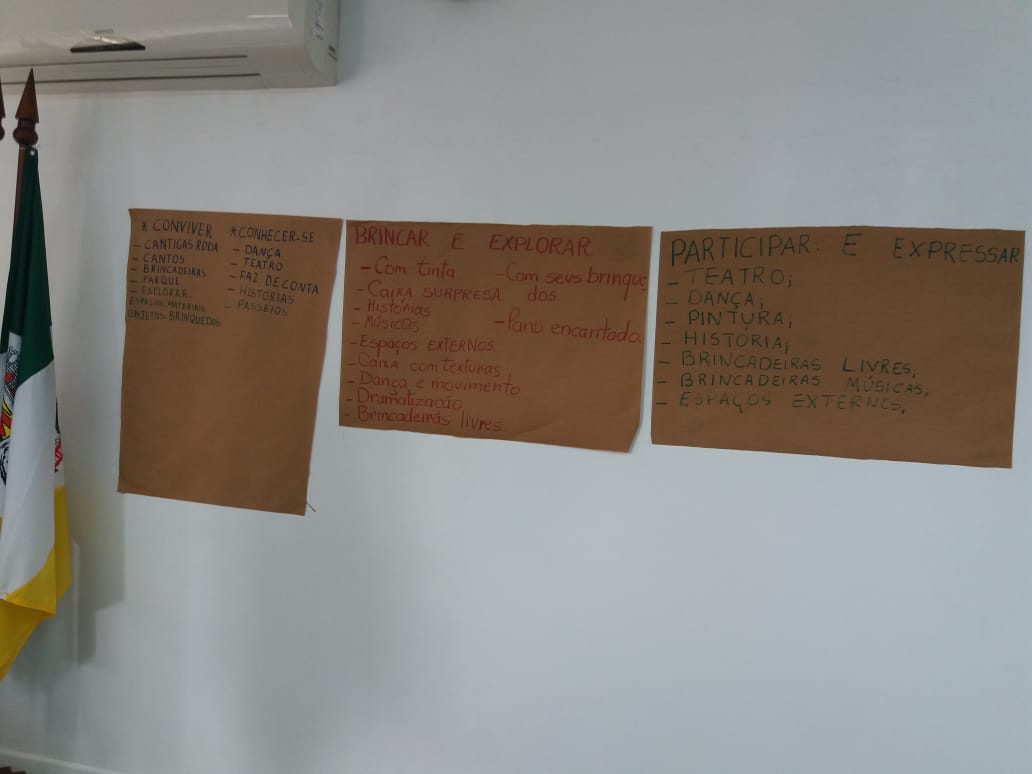 * CONVIVER
- CANTIGAS RODA
- CANTOS
- BRINCADEIRAS
- PARQUE
- EXPLORAR
ESPAÇOS, MATERIAIS,
OBJETOS, BRINQUEDOS
* CONHECER-SE
- DANÇA
- TEATRO
- FAZ DE CONTA
- HISTÓRIAS
- PASSEIOS
BRINCAR E EXPLORAR
- Com tinta
- CAIXA SURPRESA
- Histórias
- Músicas
- Espaços EXTERNOS
- Caixa com texturas
- Dança e movimento
- Dramatização
- Brincadeiras livres
- Com seus brinque
dos.
- Pano encantado.
PARTICIPAR E EXPRESSAR
- TEATRO;
- DANÇA;
- PINTURA;
- HISTÓRIA;
- BRINCADEIRAS LIVRES;
- BRINCADEIRAS MÚSICAS;
- ESPAÇOS EXTERNOS.